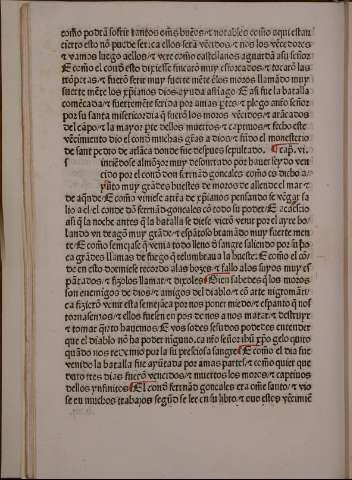 como podrā sofrir tantos oms̄ buēos ⁊ notables como aqui estan
cierto esto nō puede ser ca ellos serā vēcidos ⁊ nos los vēcedores
⁊ vamos luego a ellos ⁊ vere como castellanos aguardā asu señor
E como el cond̄ esto dixiesse fuerō muy esforçados ⁊ tocarō las
trōpetas ⁊ fuerō ferir muy fuerte mēte elos moros llamādo muy
fuerte mēte los xp̄ianos dios ayuda ⁊ sātiago E assi fue la batalla
comēcada ⁊ fuertemēte ferida por amas ptes ⁊ plogo anr̄o señor
por su santa misericordia q̄ fuerō los moros vēcidos ⁊ arācados
del cāpo ⁊ la mayor pte dellos muertos ⁊ captiuos ⁊ fecho este
vēcimiento dio el cond̄ muchas gr̄as a dios ⁊ fūdo el monesterio
de sant pedro de arlāca donde fue despues sepultado. ¶cap̄. vi.
s intiēdose almāçor muy desonrrado por hauer seydo ven
cido por el cond̄ don fernād gonçales como es dicho a/
yūto muy grādes huestes de moros de allende el mar ⁊
de aq̄nde E como viniese cōtra de xp̄ianos pensando se vēgar sa
lio a el el conde dō fernād gonçales cō todo su poder ⁊ E acaescio
assi q̄ la noche antes q̄ la batalla se diese vierō venir por el ayre bo
lando vn dragō muy grāde ⁊ espātoso bramādo muy fuerte men
te E como semejase q̄ venia todo lleno d̄ sangre saliendo por la bo
ca grādes llamas de fuego q̄ relumbraua la hueste: E como el cō/
de en esto dormiese recordo alas bozes ⁊ fallo alos suyos muy es
pātados ⁊ fizolos llamar ⁊ dixoles ¶Bien sabedes q̄ los moros
son enemigos de dios ⁊ amigos del diablo ⁊ cō arte nigromāti/
ca fizierō venir esta semejāça por nos poner miedo ⁊ espanto q̄ nos
tornasemos ⁊ ellos fuesen en pos de nos a nos matar ⁊ destruyr
⁊ tomar q̄nto hauemos E vos todos sesudos podedes entender
que el diablo nō ha poder niguno. ca nr̄o señor ih̄u xp̄o gelo quito
quādo nos redimio por la su presciosa sangre ¶E como el dia fue
venido la batalla fue ayūtada por amas partes ⁊ como quier que
duro tres dias fuerō vencidos ⁊ muertos los moros ⁊ captiuos
dellos ynfinitos ¶El cond̄ fernād gonçales era om̄e santo ⁊ vio
se en muchos trabajos segūd se lee en su libro ⁊ ouo elles vēcimiē